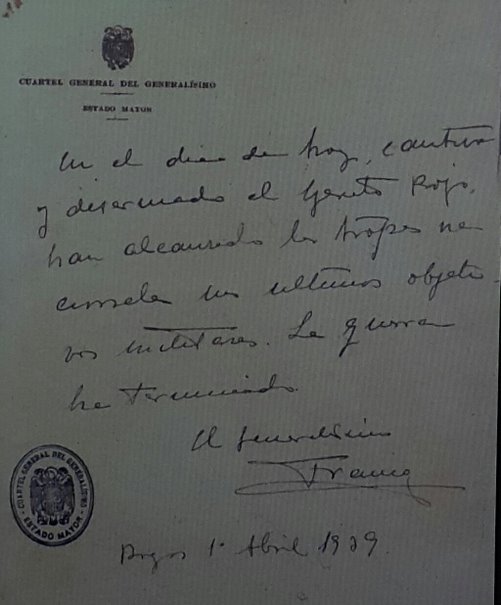 CUARTEL GENERAL DEL GENERALÍSIMO
ESTADO MAYOR
En el dia de hoy, cautivo
y desarmado el Ejercito Rojo,
han alcanzado las tropas na-
cionales sus ultimos objeti-
vos militares. La guerra
ha terminado.
El Generalisimo
Franco
Burgos 1º Abril 1939.
CUARTEL GENERAL DEL GENERALISIMO
ESTADO MAYOR